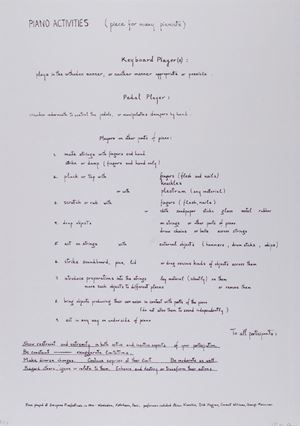 PIANO ACTIVITIES (piece for many pianists)
Keyboard Player(s):
plays in the orthodox manner, or another manner appropriate or possible.
Pedal Player:
crouches underneath to control the pedals, or manipulates dampers by hand.
Players on other parts of piano:
1. make strings with fingers and hand
strike or damp (fingers and hand only)
2. pluck or tap with fingers (flesh and nails)
knuckles
or with plectrum (any material)
3. scratch or rub with fingers (flesh, nails)
or cloth sandpaper sticks glass metal rubber
4. drop objects on strings or other parts of piano
draw chains or bells across strings
5. act on strings with external objects (hammers, drum sticks, whips)
6. strike soundboard, pins, lid or drag various kinds of objects across them
7. introduce preparations into the strings (any material) on them
move such objects to different places or remove them
8. bring objects producing their own noise in contact with parts of the piano
(do not allow them to sound independently)
9. act in any way on underside of piano
To all participants:
Show restraint and extremity in both active and reactive aspects of your participation.
Be constant exaggerate limitations.
Make diverse changes. Confuse surprises at their limit. Be moderate as well.
Disregard others, ignore or relate to them. Enhance and destroy or transform their actions.